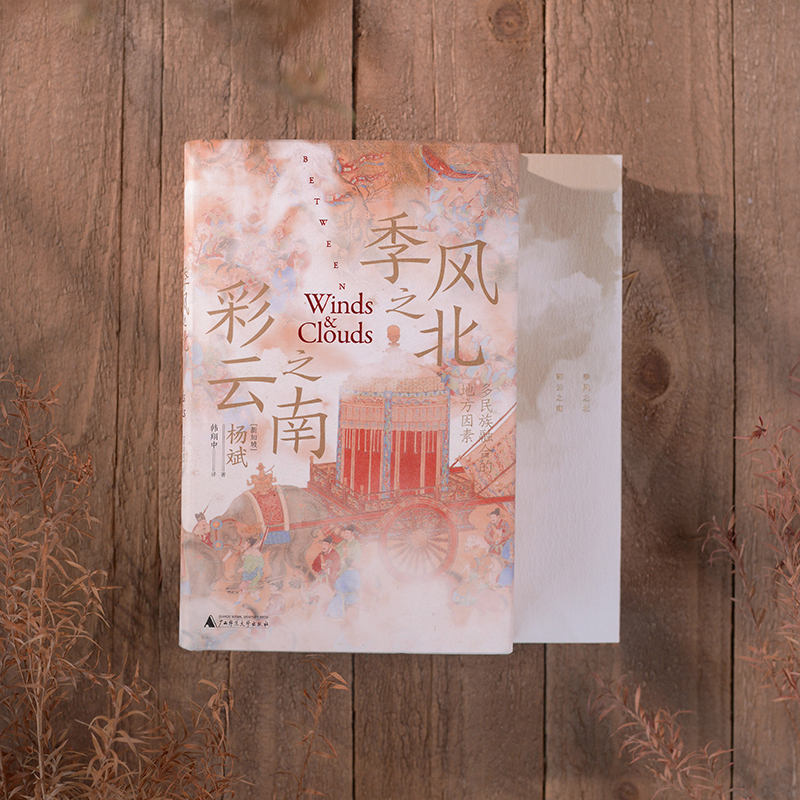 BETWEEN
Winds
&
Clouds
季风之北
彩云之南
多民族融合的
地方因素
[新加坡]
杨斌
著
韩翔中
译
广西师范大学出版社
季风之北
彩云之南